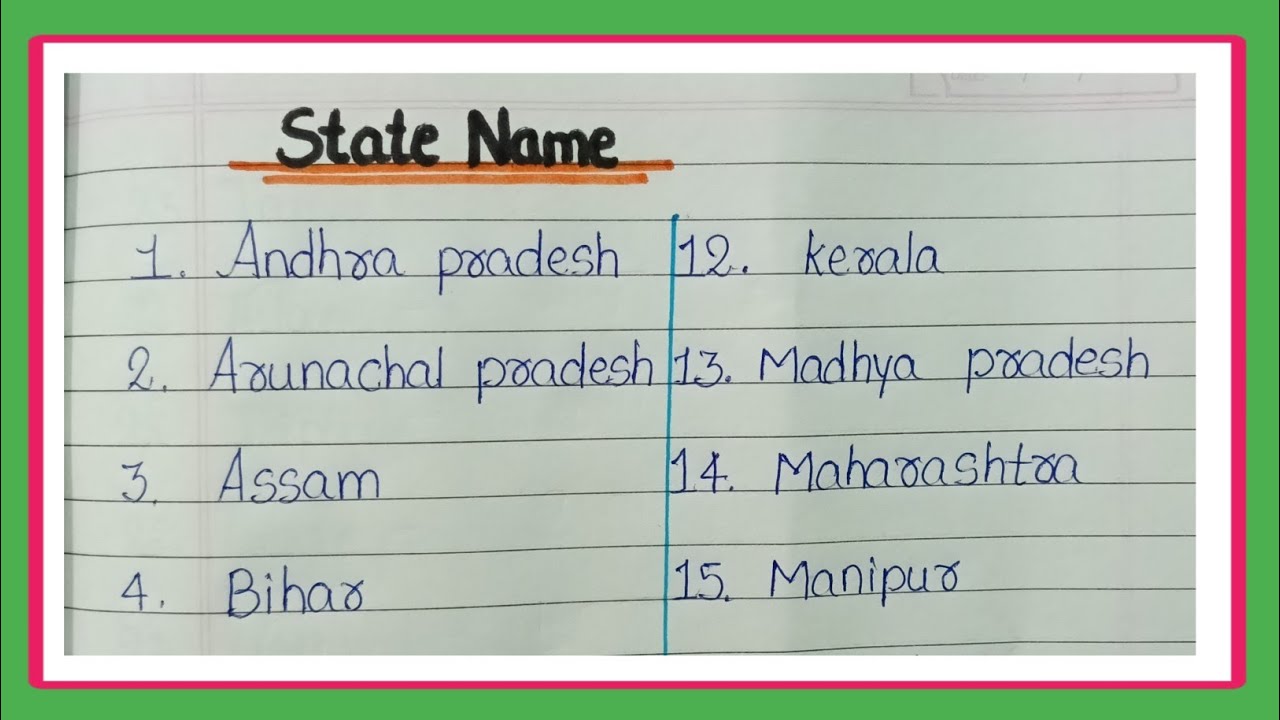 State Name
1. Andhra pradesh
2. Arunachal pradesh
3. Assam
4. Bihar
12. kerala
13. Madhya pradesh
14. Maharashtra
15. Manipur